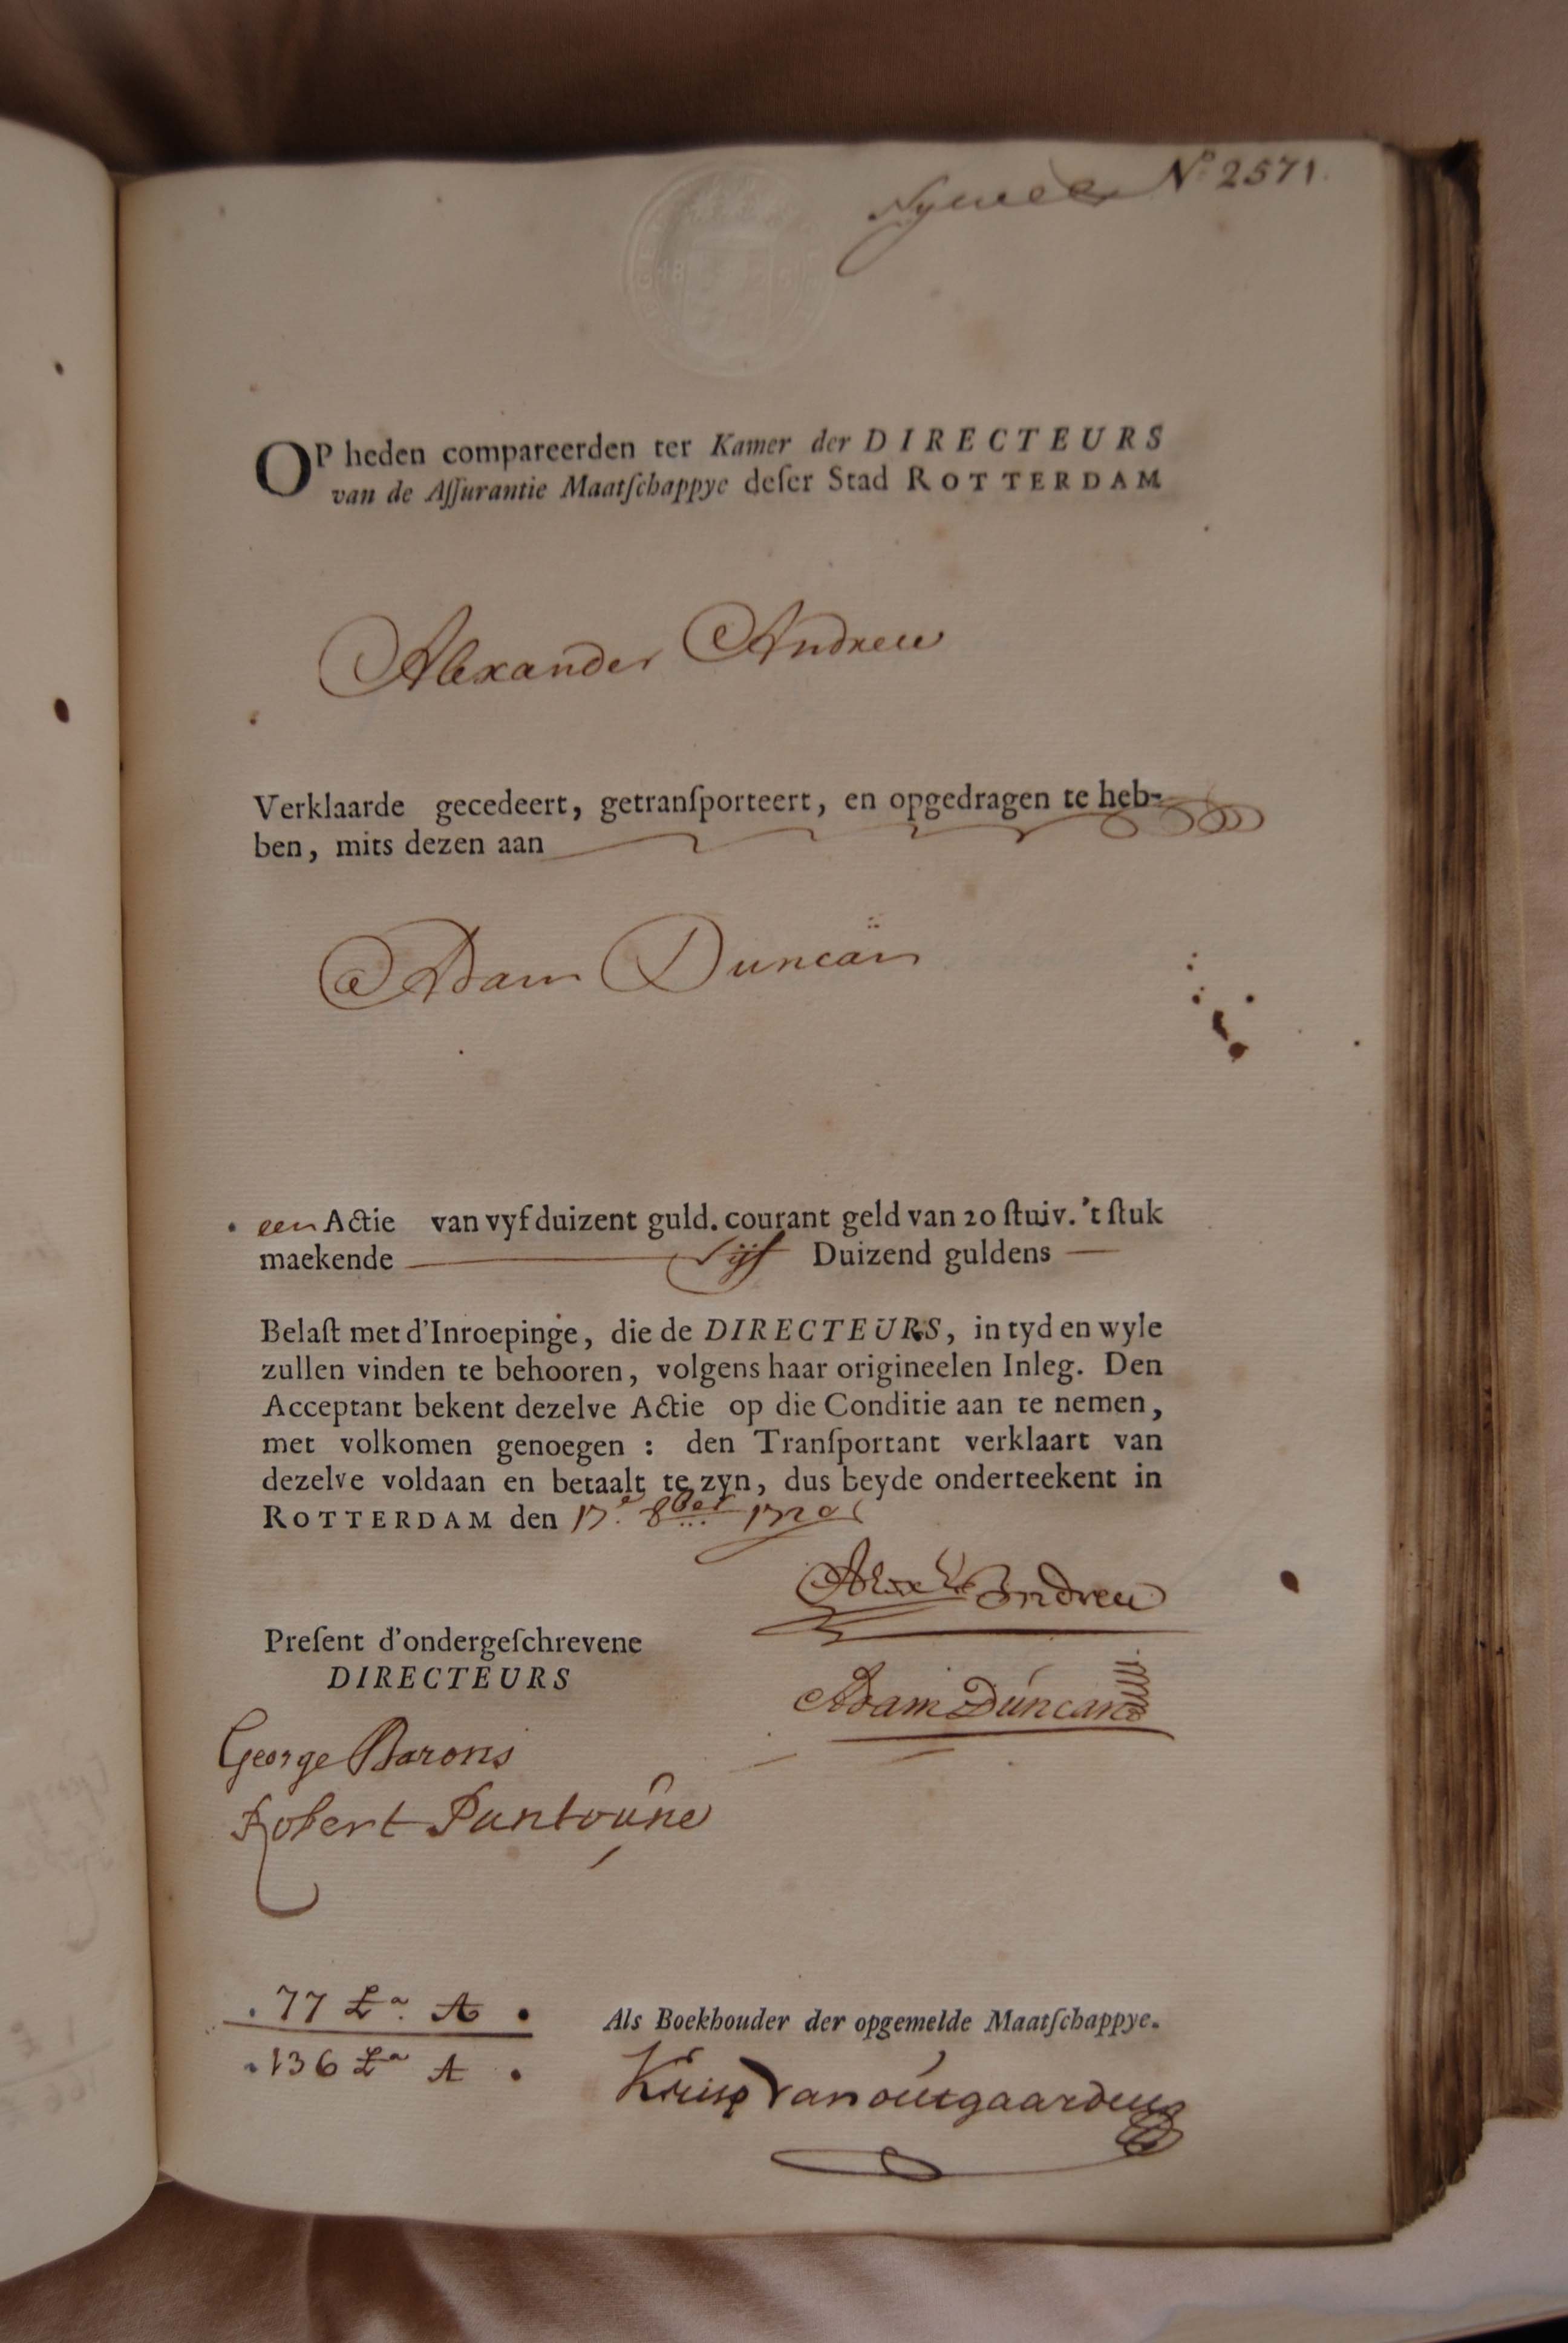 No 2571.
OP heden compareerden ter Kamer der DIRECTEURS
van de Aſſurantie Maatſchappye deſer Stad ROTTERDAM
Alexander Andrew
Verklaarde gecedeert, getranſporteert, en opgedragen te heb-
ben, mits dezen aan
Adam Duncan
een Actie van vyf duizent guld. courant geld van 20 ſtuiv. 't ſtuk
maekende Vijf Duizend guldens
Belaſt met d'Inroepinge, die de DIRECTEURS, in tyd en wyle
zullen vinden te behooren, volgens haar origineelen Inleg. Den
Acceptant bekent dezelve Actie op die Conditie aan te nemen,
met volkomen genoegen : den Tranſportant verklaart van
dezelve voldaan en betaalt te zyn, dus beyde onderteekent in
ROTTERDAM den 17.e 8ber 1720
Alexr Andrew
Preſent d'ondergeſchrevene
DIRECTEURS
Adam Duncan
George Barons
Robert Puntoune
77 La. A
136 La A
Als Boekhouder der opgemelde Maatſchappye.
Van outgaarden